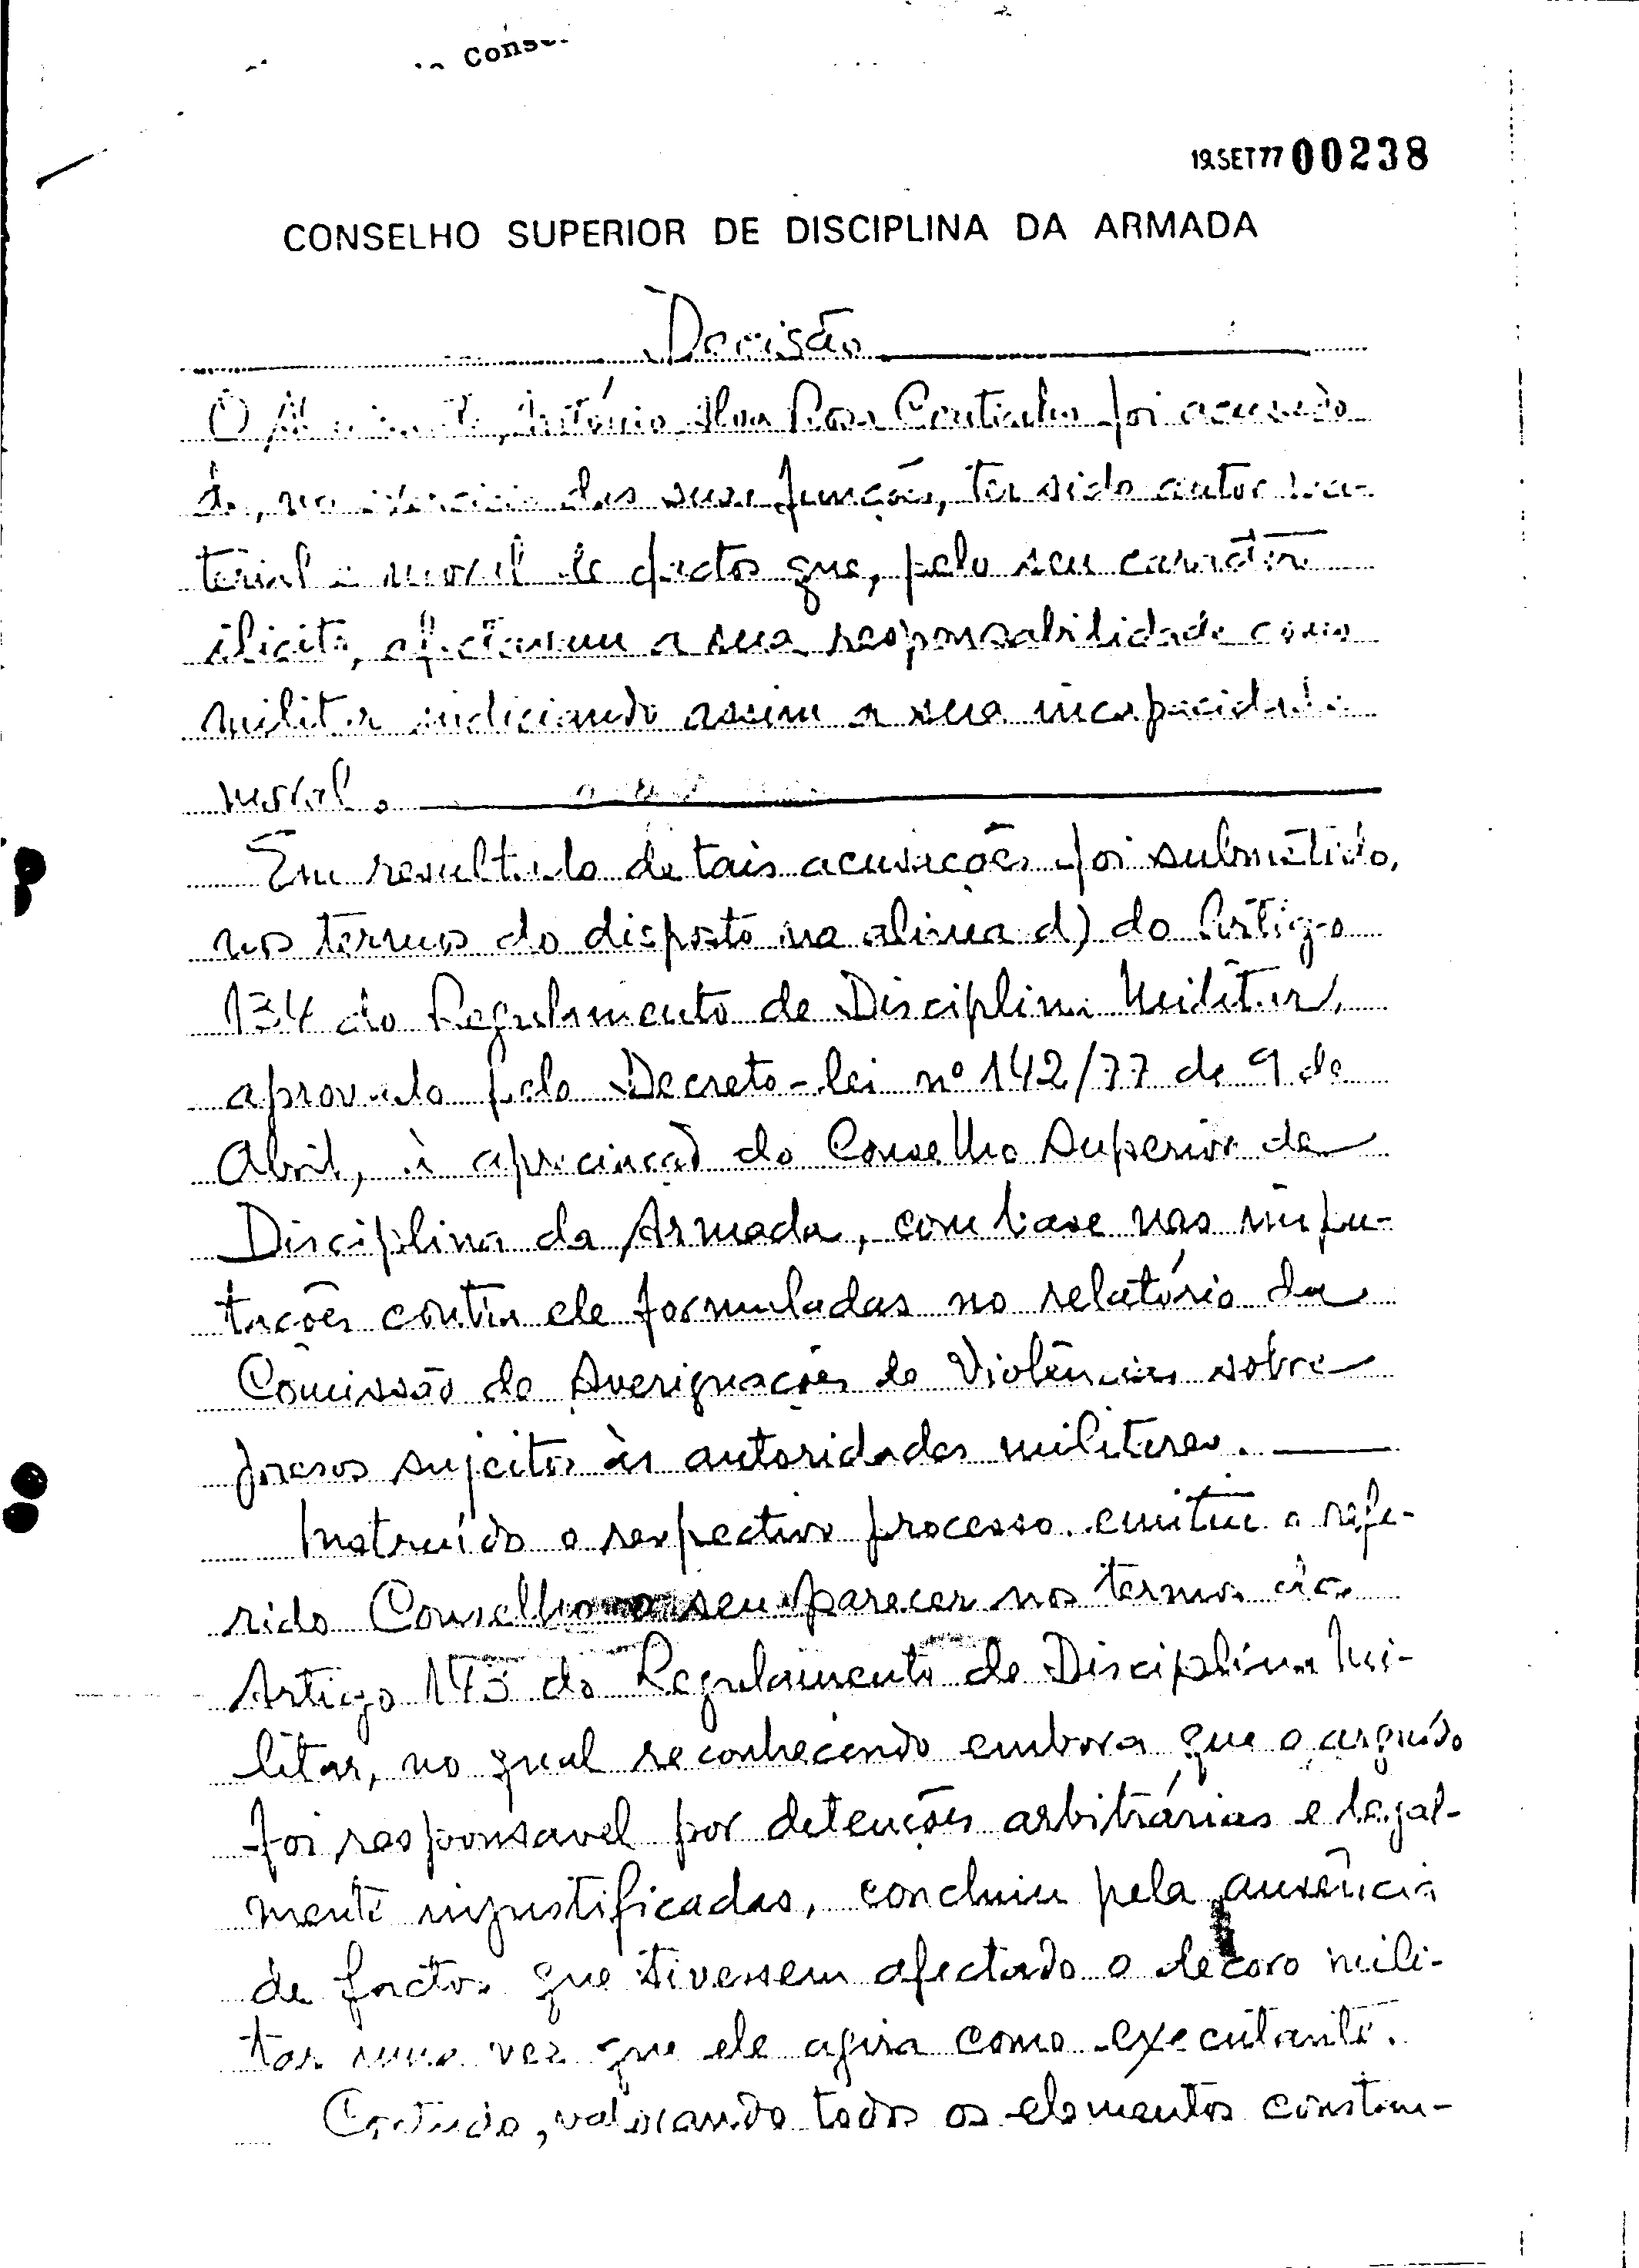 Conse
19.SET77 00238
CONSELHO SUPERIOR DE DISCIPLINA DA ARMADA
Decisão
O Almirante António Alva Rosa Coutinho foi acusado
de, no exercício das suas funções, ter sido autor ma-
terial e moral de factos que, pelo seu carácter
ilícito, afectavam a sua responsabilidade como
militar indiciando assim a sua incapacidade
moral.
Em resultado de tais acusações foi submetido,
nos termos do disposto na alinea d) do Artigo
134 do Regulamento de Disciplina Militar,
aprovado pelo Decreto-lei nº 142/77 de 9 de
Abril, à apreciação do Conselho Superior de
Disciplina da Armada, com base nas impu-
tações contra ele formuladas no relatório da
Comissão de Averiguações de Violências sobre
presos sujeitos às autoridades militares.
Instruído o respectivo processo emitiu o refe-
rido Conselho o seu parecer nos termos do
Artigo do Regulamento de Disciplina Mi-
litar, no qual reconhecendo embora que o arguido
foi responsavel por detenções arbitrárias e legal-
mente injustificadas, concluiu pela ausência
de factos que tivessem afectado o decoro mili-
tar uma vez que ele agira como executante.
Contudo, valorando todos os elementos constan-